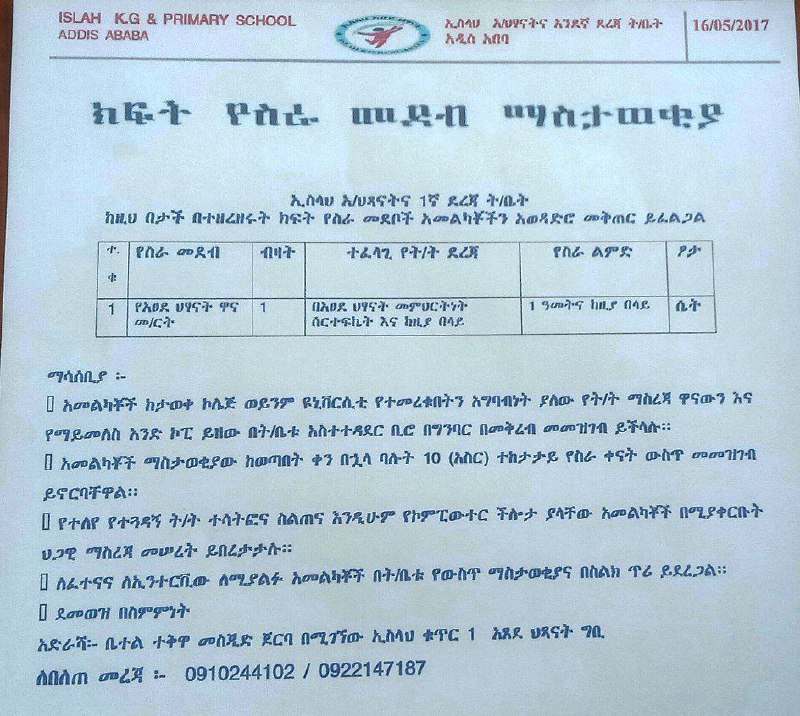 ISLAH K.G & PRIMARY SCHOOL
ADDIS ABABA
ኢስላህ አ/ህፃናትና አንደኛ ደረጃ ት/ቤት
አዲስ አበባ
16/05/2017
ክፍት የስራ መደብ ማስታወቂያ
ኢስላህ አ/ህጻናትና 1ኛ ደረጃ ት/ቤት
ከዚህ በታች በተዘረዘሩት ክፍት የስራ መደቦች አመልካቾችን አወዳድሮ መቅጠር ይፈልጋል
ተ.ቁ የስራ መደብ ብዛት ተፈላጊ የት/ት ደረጃ የስራ ልምድ ፆታ
1 የአፀደ ህፃናት ዋና 1 በአፀደ ህፃናት መምህርትነት 1 ዓመትና ከዚያ በላይ ሴት
መ/ርት ሰርተፍኬት እና ከዚያ በላይ
ማሳሰቢያ ፡-
አመልካቾች ከታወቀ ኮሌጅ ወይንም ዩኒቨርሲቲ የተመረቁበትን አግባብነት ያለው የት/ት ማስረጃ ዋናውን እና
የማይመለስ አንድ ኮፒ ይዘው በት/ቤቱ አስተተዳደር ቢሮ በግንባር በመቅረብ መመዝገብ ይችላሉ፡፡
አመልካቾች ማስታወቂያው ከወጣበት ቀን በኋላ ባሉት 10 (አስር) ተከታታይ የስራ ቀናት ውስጥ መመዝገብ
ይኖርባቸዋል፡፡
የተለየ የተጓዳኝ ት/ት ተሳትፎና ስልጠና እንዲሁም የኮምፒውተር ችሎታ ያላቸው አመልካቾች በሚያቀርቡት
ህጋዊ ማስረጃ መሠረት ይበረታታሉ፡፡
ለፈተናና ለኢንተርቪው ለሚያልፉ አመልካቾች በት/ቤቱ የውስጥ ማስታወቂያና በስልክ ጥሪ ይደረጋል፡፡
ደመወዝ በስምምነት
አድራሻ፡- ቤተል ተቅዋ መስጂድ ጀርባ በሚገኘው ኢስላህ ቁጥር 1 አጸደ ህጻናት ግቢ
ለበለጠ መረጃ ፡- 0910244102 / 0922147187